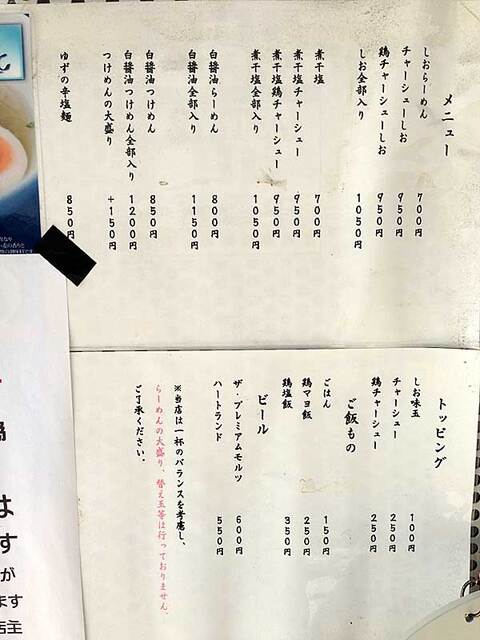 メニュー
しおらーめん 700円
チャーシューしお 950円
鶏チャーシューしお 950円
しお全部入り 1050円
煮干塩 700円
煮干塩チャーシュー 950円
煮干塩鶏チャーシュー 950円
煮干塩全部入り 1050円
白醤油らーめん 800円
白醤油全部入り 1150円
白醤油つけめん 850円
白醤油つけめん全部入り 1200円
つけめんの大盛り +150円
ゆずの辛塩麺 850円
トッピング
しお味玉 100円
チャーシュー 250円
鶏チャーシュー 250円
ご飯もの
ごはん 150円
鶏マヨ飯 250円
鶏塩飯 350円
ビール
ザ・プレミアムモルツ 600円
ハートランド 550円
※当店は一杯のバランスを考慮し、
らーめんの大盛り、替え玉等は行っておりません。
ご了承ください。
は
す
が
ます
店主